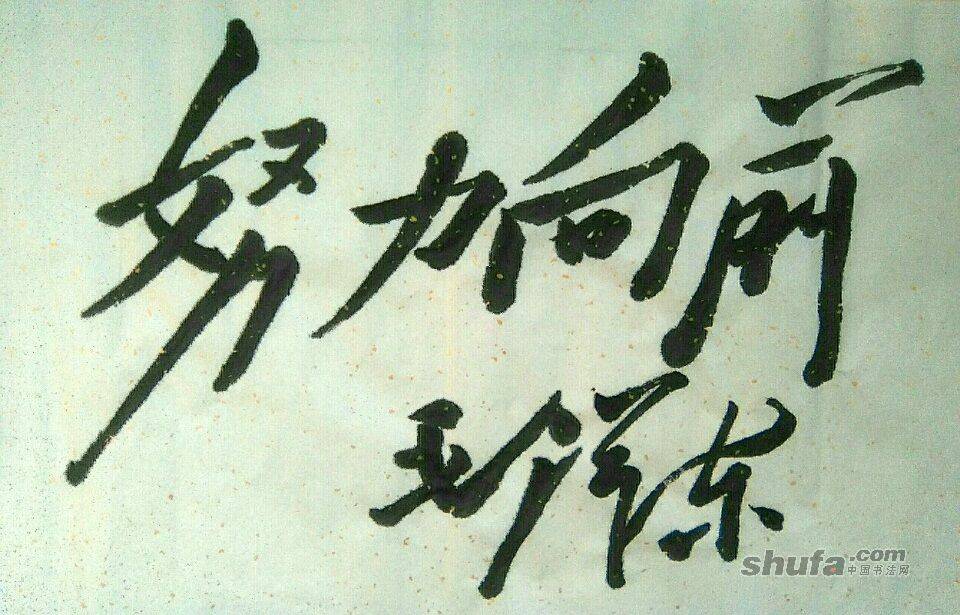 努力向前
毛泽东
shufa.com
中国书法网